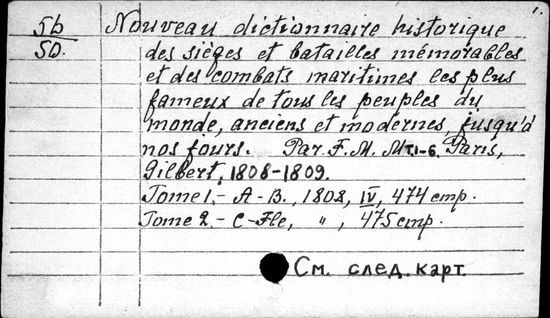 1.
56
50.
Nouveau dictionnaire historique
des sièges et batailles mémorables
et des combats maritimes les plus
fameux de tous les peuples du
monde, anciens et modernes, jusqu'à
nos jours. Par F. M. M. T.1-6. Paris,
Gilbert, 1808-1809.
Tome 1.- A-B., 1808, IV, 474 стр.
Tome 2.- C-Fle, " , 475 стр.
См. след. карт.